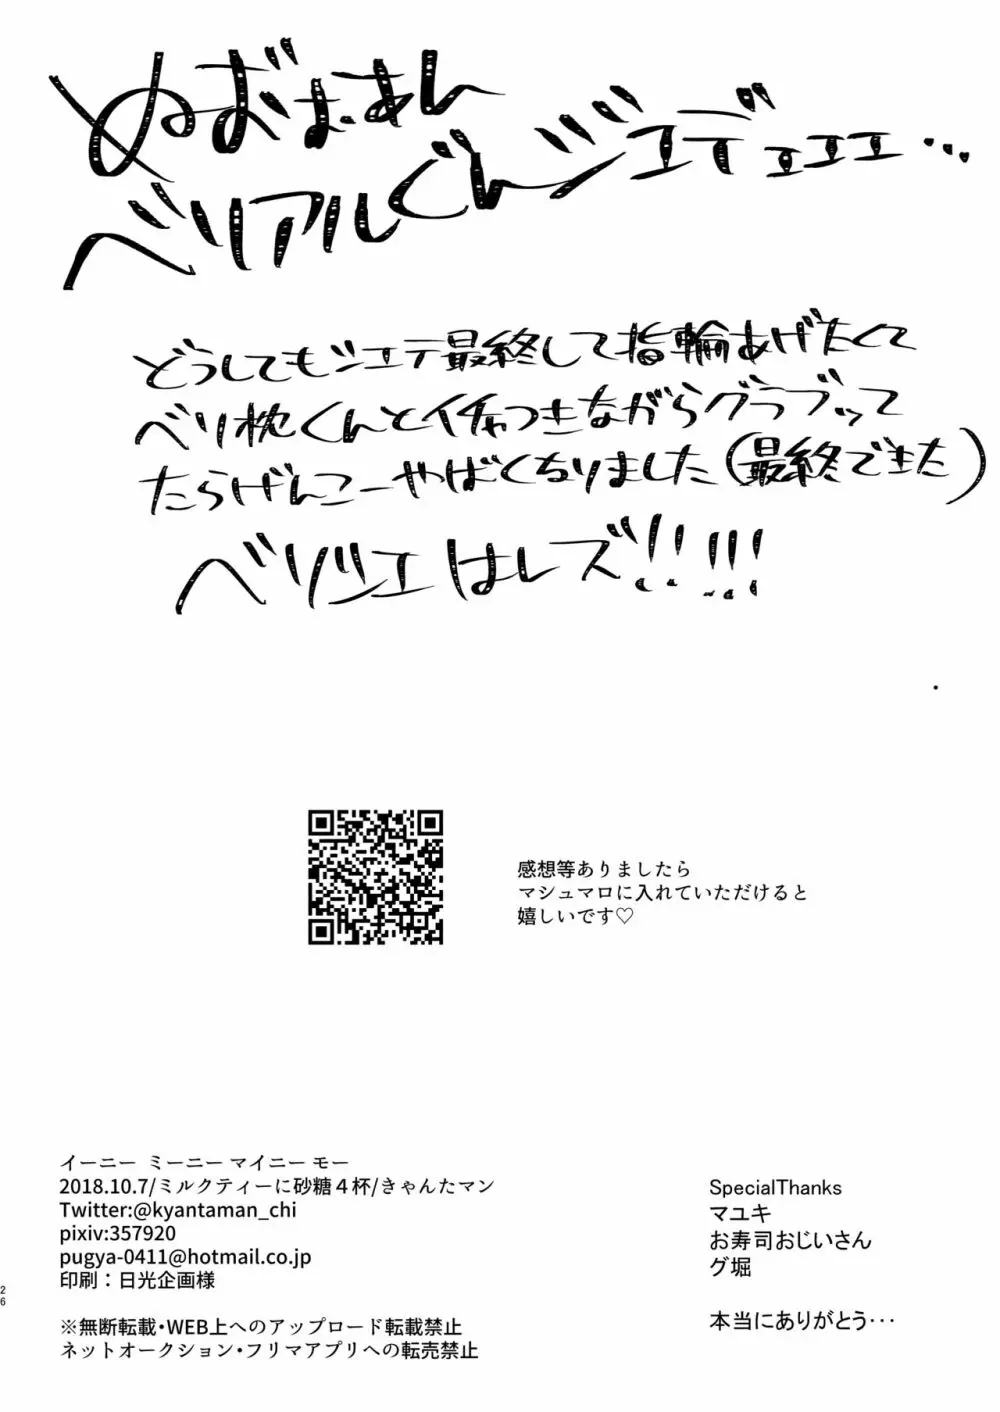 ぬぉまぁん
ベリアルぐんジエデェェェ…
どうしてもシエテ最終して指輪あげたくて
ベリ枕くんとイチャつきながらグラブッて
たらげんこーやばくなりました(最終できた)
ベリシエはレズ!!!!!
感想等ありましたら
マシュマロに入れていただけると
嬉しいです♡
イーニー ミーニー マイニー モー
2018.10.7/ミルクティーに砂糖４杯/きゃんたマン
Twitter:@kyantaman_chi
pixiv:357920
pugya-0411@hotmail.co.jp
印刷：日光企画様
※無断転載・WEB上へのアップロード転載禁止
ネットオークション・フリマアプリへの転売禁止
SpecialThanks
マユキ
お寿司おじいさん
グ堀
本当にありがとう・・・
26